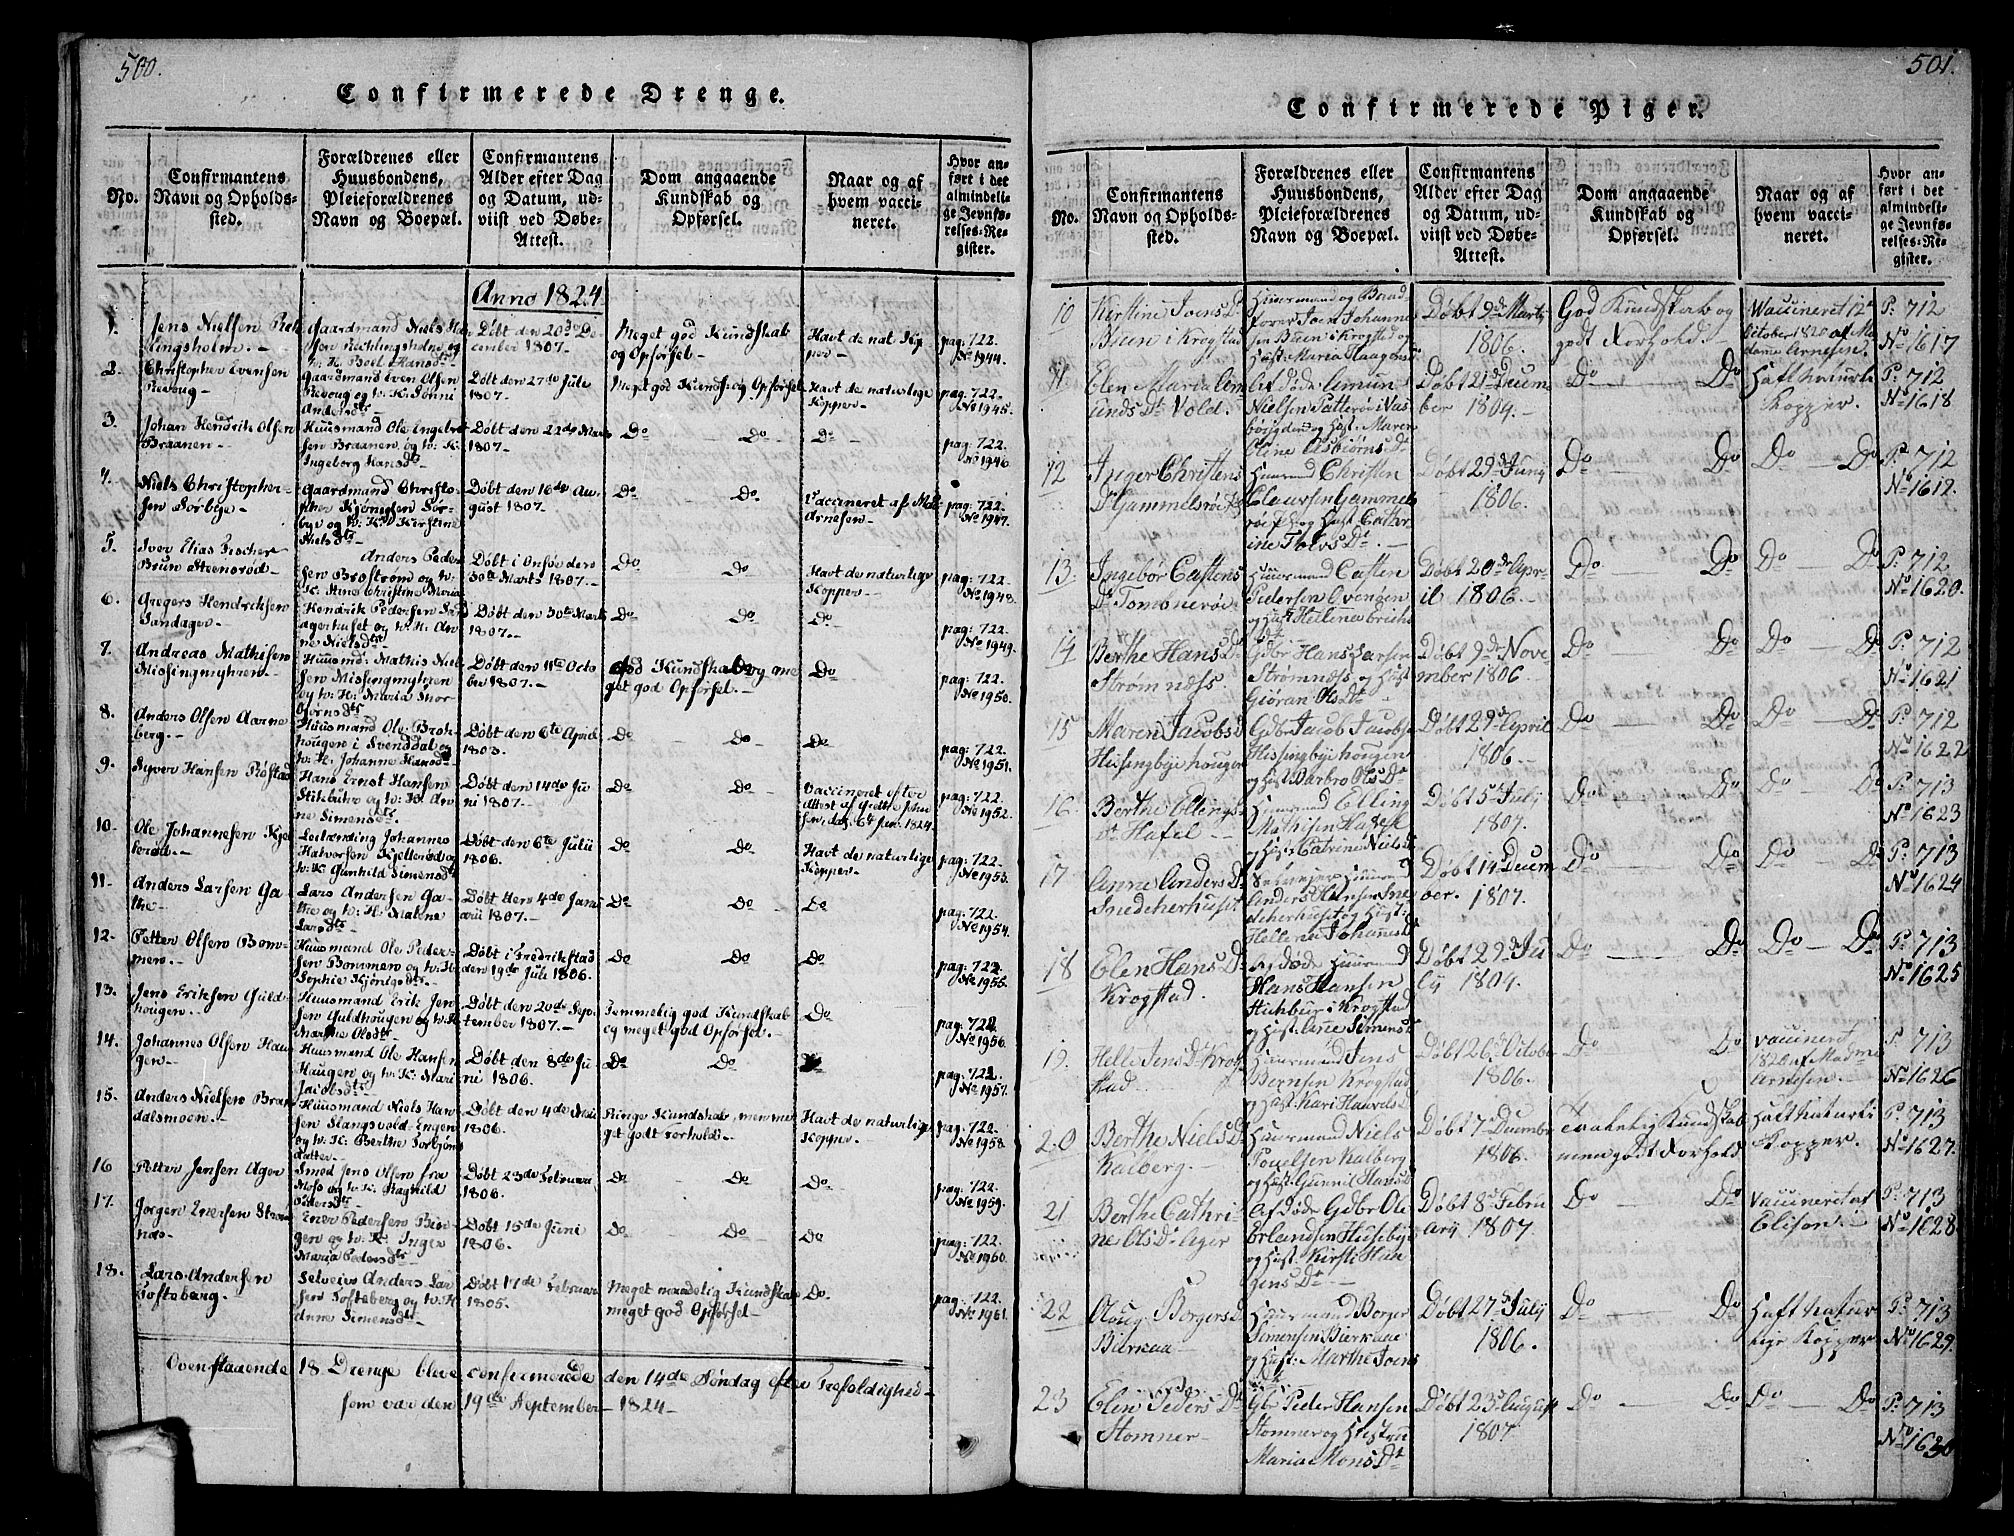 500.
Confirmerede Drenge.
No.
Confirmantens
Navn og Opholds-
sted.
Forældrenes eller
Huusbondens,
Pleieforældrenes
Navn og Boepæl.
Confirmantens
Alder efter Dag
og Datum, ud-
viist ved Døbe-
Attest.
Dom angaaende
Kundskab og
Opførsel.
Naar og af
hvem vacci-
neret.
Hvor an-
ført i det
almindeli-
ge Jevnfø-
relses-Re-
gister.
Anno 1824
1.
Jens Nielsen
lingsholm.-
Gaardmand Niels
sen og
w. K. Boel Hansdtr
Døbt den 20de De-
cember 1807.-
Meget god Kundskab
og Opførsel.-
Havt de nat. Kop
per-
pag: 722.
No 1944.
2.
Christopher Evensen
Revoug-
Gaardmand Even Olsen
Revoug og w. K. Tonni
Andersdtr
Døbt den 27de Juli
1807.-
Meget god Kundsk: og Opførsel
Havt de naturlige
Kopper-
pag: 722.
No 1945.
3.
Johan Hendrik Olsen
Braanen-
Huusmand Ole Engebret
sen Braanen og w: K.
Ingeborg Hansdtr-
Døbt den 22de Marts
1807-
Do Do
Do -
pag: 722.
No 1946.
4.
Niels Christopher-
sen Sørbye-
Gaardmand Christo-
pher Kjønigsen Sør-
bye og w: K. Kirstine
Nielsdtr-
Døbt den 16de Au-
gust 1807.-
Do Do
Vaccineret af Md
Arnesen-
pag: 722.
No 1947.
5.
Iver Elias Fischer
Brun Steensrød-
Anders Peder
sen Brostrøm og w.
K. Stine Christine Maria
Døbt i Onsøe den
30te Marts 1807.-
Do Do
Havt de naturlige
Kopper-
pag: 722.
No 1948.
6.
Gregers Hendriksen
Sandager-
Hendrik Pedersen Sand
agerhuset og w. K. An-
ne Nielsdtr-
Døbt den 30te Marts
1807.-
Do Do
Do
pag: 722.
No 1949.
7.
Andreas Mathisen
Missingmyhren-
Huusmd: Mathis Niel-
sen Missingmyhren
og w: K. Maria Thor-
bjørnsdtr
Døbt den 11te Octo
ber 1807.-
God Kundskab og me
get god Opførsel.-
Do-
pag: 722.
No 1950.
8.
Anders Olsen Aarne
berg.-
Huusmand Ole Brat-
hougen i Svenddal og
w. K. Johanne Hansdtr
Døbt den 6te April
1803.-
Do Do
Do
pag: 722.
No 1951.
9.
Syver Hansen Prøstad
Hans Ernst Hansen
Stikbuhr og w: K. An-
ne Simensdtr
Døbt den 14de Ju
ni 1807.-
Do Do
Vaccineret efter
Attest af Grethe John
sen, dat. 6te Jan: 1824.
pag: 722.
No 1952.
10.
Ole Johannesen Kjel
lerød.-
Leilænding Johannes
Halvorsen Kjellerød og
w. K. Gunhild Simensdtr
Døbt den 6te Julii
1806.
Do Do
Havt de naturlige
Kopper-
pag: 722.
No 1953.
11.
Anders Larsen Ga-
the-
Lars Andersen Ga-
the og w: K. Malene
Larsdtr
Døbt den 4de Janu
arii 1807.-
Do Do
Do
pag: 722.
No 1954.
12.
Petter Olsen Bom-
men.-
Huusmand Ole Peder-
sen Bommen og w: K.
Sophie Kjønigsdtr-
Døbt i Fredrikstad
den 19de Juli 1806.
Do Do
Do
pag: 722.
No 1955.
13.
Jens Eriksen Guld-
hougen-
Huusmand Erik Jen-
sen Guldhougen og w. K.
Marthe Olsdtr-
Døbt den 20de Sep-
tember 1807.-
Temmelig god Kundskab
og meget god Opførsel.-
Do
pag: 722.
No 1956.
14.
Johannes Olsen Hau-
gen-
Huusmand Ole Hansen
Haugen og w. K: Mari
Jacobsdtr
Døbt den 8de Ju
ni 1806.
Do Do
Do
pag: 722.
No 1957.
15.
Anders Nielsen Bran
dalsmoen.-
Huusmand Niels Han-
sen Slangsvold-Engen
og w: K. Berthe Torbjøns
datter
Døbt den 4de Mai
1806.
Ringe Kundskab, men me
get godt Forhold.-
Havt de naturlige
Kopper-
pag: 722.
No 1958.
16
Petter Jensen Ager
Smed Jens Olsen fra
Moss og w. K. Ragnild
Pedersdtr
Døbt 23de Februari
1806.
Do Do
Do.
pag: 722.
No 1959.
17.
Jørgen Enersen Strøm
næs.-
Ener Pedersen Bin-
gen og w. K. Inger
Maria Pedersdtr
Døbt 15de Juni
1806.
Do Do
Do
pag: 722.
No 1960.
18.
Lars Andersen
Tofteberg.-
Selveier Anders Lar
sen Tofteberg og w: K.
Anne Simensdtr
Døbt 17de Februari
1805.
Meget maadelig Kundskab
meget god Opførsel-
Do.
pag: 722.
No 1961.
Ovenstaaende 18 Drenge bleve confirmerede den 14de Søndag efter Trefoldighed-
som var den 19de September 1824-
501.
Confirmerede Piger.
No.
Confirmantens
Navn og Opholds-
sted.
Forældrenes eller
Huusbondens,
Pleieforældrenes
Navn og Boepæl.
Confirmantens
Alder efter Dag
og Datum, ud-
viist ved Døbe-
Attest.
Dom angaaende
Kundskab og
Opførsel.
Naar og af
hvem vacci-
neret.
Hvor an-
ført i det
almindeli-
ge Jevnfø-
relses-Re-
gister.
10
Kirstine Joens Dr
Buen i Krogstad
Huusmand og Baad
fører Joen Johanne
sen Buen i Krogstad og
Hust. Maria Haagens
Døbt 9de Marty
1806.
God Kundskab og
godt Forhold.
Vaccineret 12te
October 1820 af Ma
dame Arnesen.
P: 712
No 1617
11
Elen Maria Am
unds Dr Vold.
Afdøde Amun
Nielsen Patterøe i Vas
og Hust. Maren
Eline Asbiørns Dr
Døbt 21de Decem
ber 1804.-
Do Do
Haft naturli
Kopper.
P: 712
No 1618
12
Inger Christens
Dr Gammelsrøe
Huusmand Christen
Claursen Gammels
røe og Hust: Cathr
ine Thors Dr.-
Døbt 29de Juny
1806.
Do Do
Do - Do
P: 712
No 1619.
13.
Ingebor Castens
Dr Tombnerøe
Huusmand Casten
Pedersen Ovengen
og Hust Hellena
Dr
Døbt 20de Apr
il 1806.-
Do Do
Do - Do
P: 712
No 1620.
14
Berthe Hans Dr
Strømnæss.
Gdbr Hans Larsen
Strømnæss og Hust
Giøran Ols Dr
Døbt 9de Nove
mber 1806.
Do Do
Do Do
P: 712
No 1621
15
Maren Jacobs d
Hissingbye houger
Gdbr Jacob Jacobse
Hissingbyehougen
og Hust Barbro Ols Dr
Døbt 29de April
1806.-
Do Do
Do - Do
P: 712
No 1622
16.
Berthe Ellings
dr Hafsel -
Huusmand Elling
Mathisen Hafsel
og Hust Catrine Niels d
Døbt 5de July
1807.
Do Do
Do - Do
P: 713
No 1623
17
Anne Anders Dr
Snedcherhuset
Huusmand
Anders Hansen Sne
dcherhuset og Hust:
Hellena Johannsd
Døbt 14 Decem
ber. 1807.
Do Do
Do - Do
P: 713
No 1624
18
Elen Hans Dr
Krogstad.
Afdøde Huusmand
Hans Hansen
Stichbuur i Krogstad
og Hust: Anne Simensd
Døbt 29de Ju
ly 1804.
Do Do
Do - Do
P: 713
No 1625
19.
Helle Jens Dr Krog
stad.
Huusmand Jens
Bernsen Krogstad
og Hust: Kari Haavels d
Døbt 26de Octobe
1806.
Do Do
vaccinered
1820 af Madme
Arnesen.
P: 713
No 1626
20
Berthe Niels Dr
Kalberg.-
Huusmand Niels
Pouelsen Kalberg
og Hust: Gunnil Hans d
Døbt 7de Decembr
1806.
Kundskab
men godt Forhold
haft naturli
Kopper.
P: 713
No 1627.
21
Berthe Cathri-
ne Ols Dr Ager
Afdøde Gdbr Ole
Erlandsen Huseby
og Hust. Kirsti Haa
gens Dr.-
Døbt 8de Febru
ary 1807.
Do Do
vaccineret af
Elison.-
P: 713
No 1628
22
Aloug Borgersd
Bærkaa
Huusmand Borger
Simensen Bierkaae
og Hust: Marthe Joens
Dr
Døbt 27de July
1806.
Do Do
Haft Natur
lige Kopper
P: 713
No 1629.
23
Elen Peders Dr
Stomner-
Gbr Peder Hansen
Stomner og Hustru
Maria Mons Dr
Døbt 23de August
1807.
Do Do
Do - Do
P: 713
No 1630